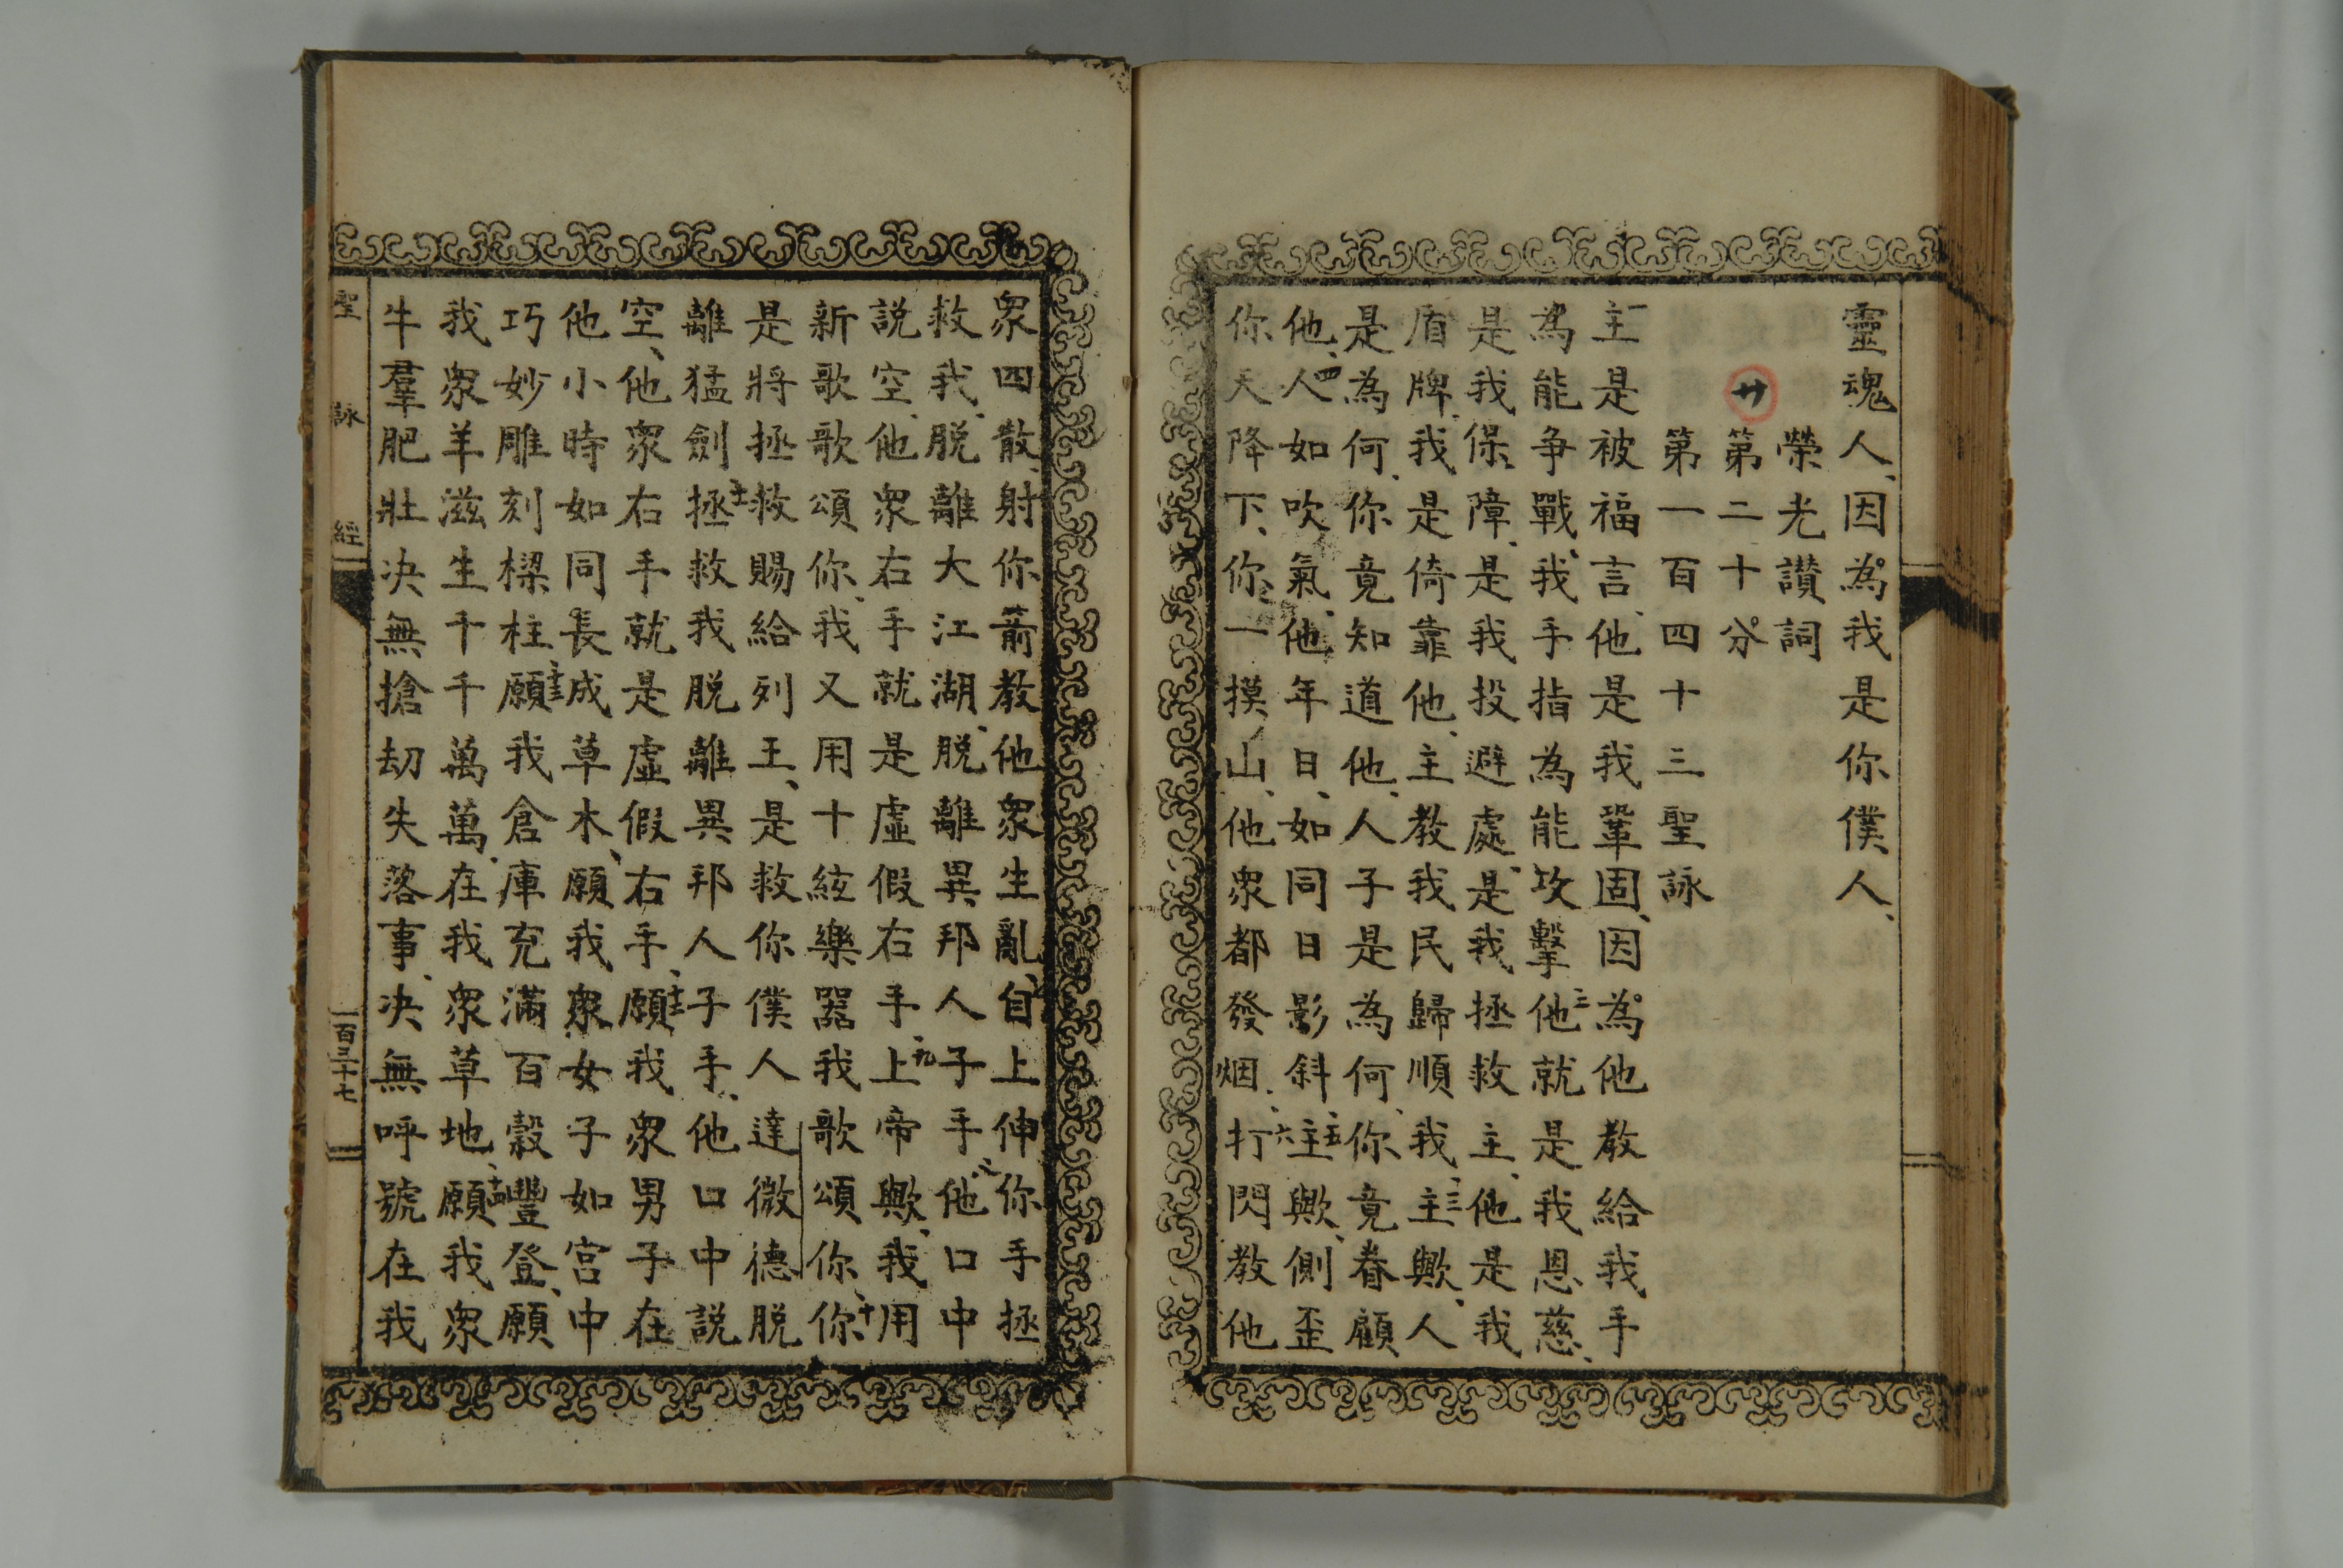 靈魂人、因為我是你僕人、
榮光讚詞
廿 第二十分
第一百四十三聖詠
一主是被福言、他是我鞏固、因為他教給我手
為能爭戰、我手指為能攻擊、二他就是我恩慈、
是我保障、是我投避處、是我拯救主、他是我
盾牌、我是倚靠他、主教我民歸順我、三主歟、人
是為何、你竟知道他、人子是為何、你竟眷顧
他、四人如吹氣、他年日、如同日影斜、五主歟、側歪
你天降下、你一摸山、他衆都發烟、六打閃教他
衆四散、射你箭教他衆生亂、七自上伸你手拯
救我、脱離大江湖、脱離異邦人子手、八他口中
説空、他衆右手就是虛假右手、九上帝歟、我用
新歌歌頌你、我又用十絃樂器我歌頌你、十你
是將拯救賜給列王、是救你僕人達微德脱
離猛劍、十一拯救我脱離異邦人子手、他口中説
空、他衆右手就是虛假右手、十二願我衆男子在
他小時如同長成草木、願我衆女子如宮中
巧妙雕刻樑柱、十三願我倉庫充滿百穀豐登、願
我衆羊滋生千千萬萬、在我衆草地、十四願我衆
牛羣肥壯、决無搶刧失落事、决無呼號在我
聖詠經 一百三十七